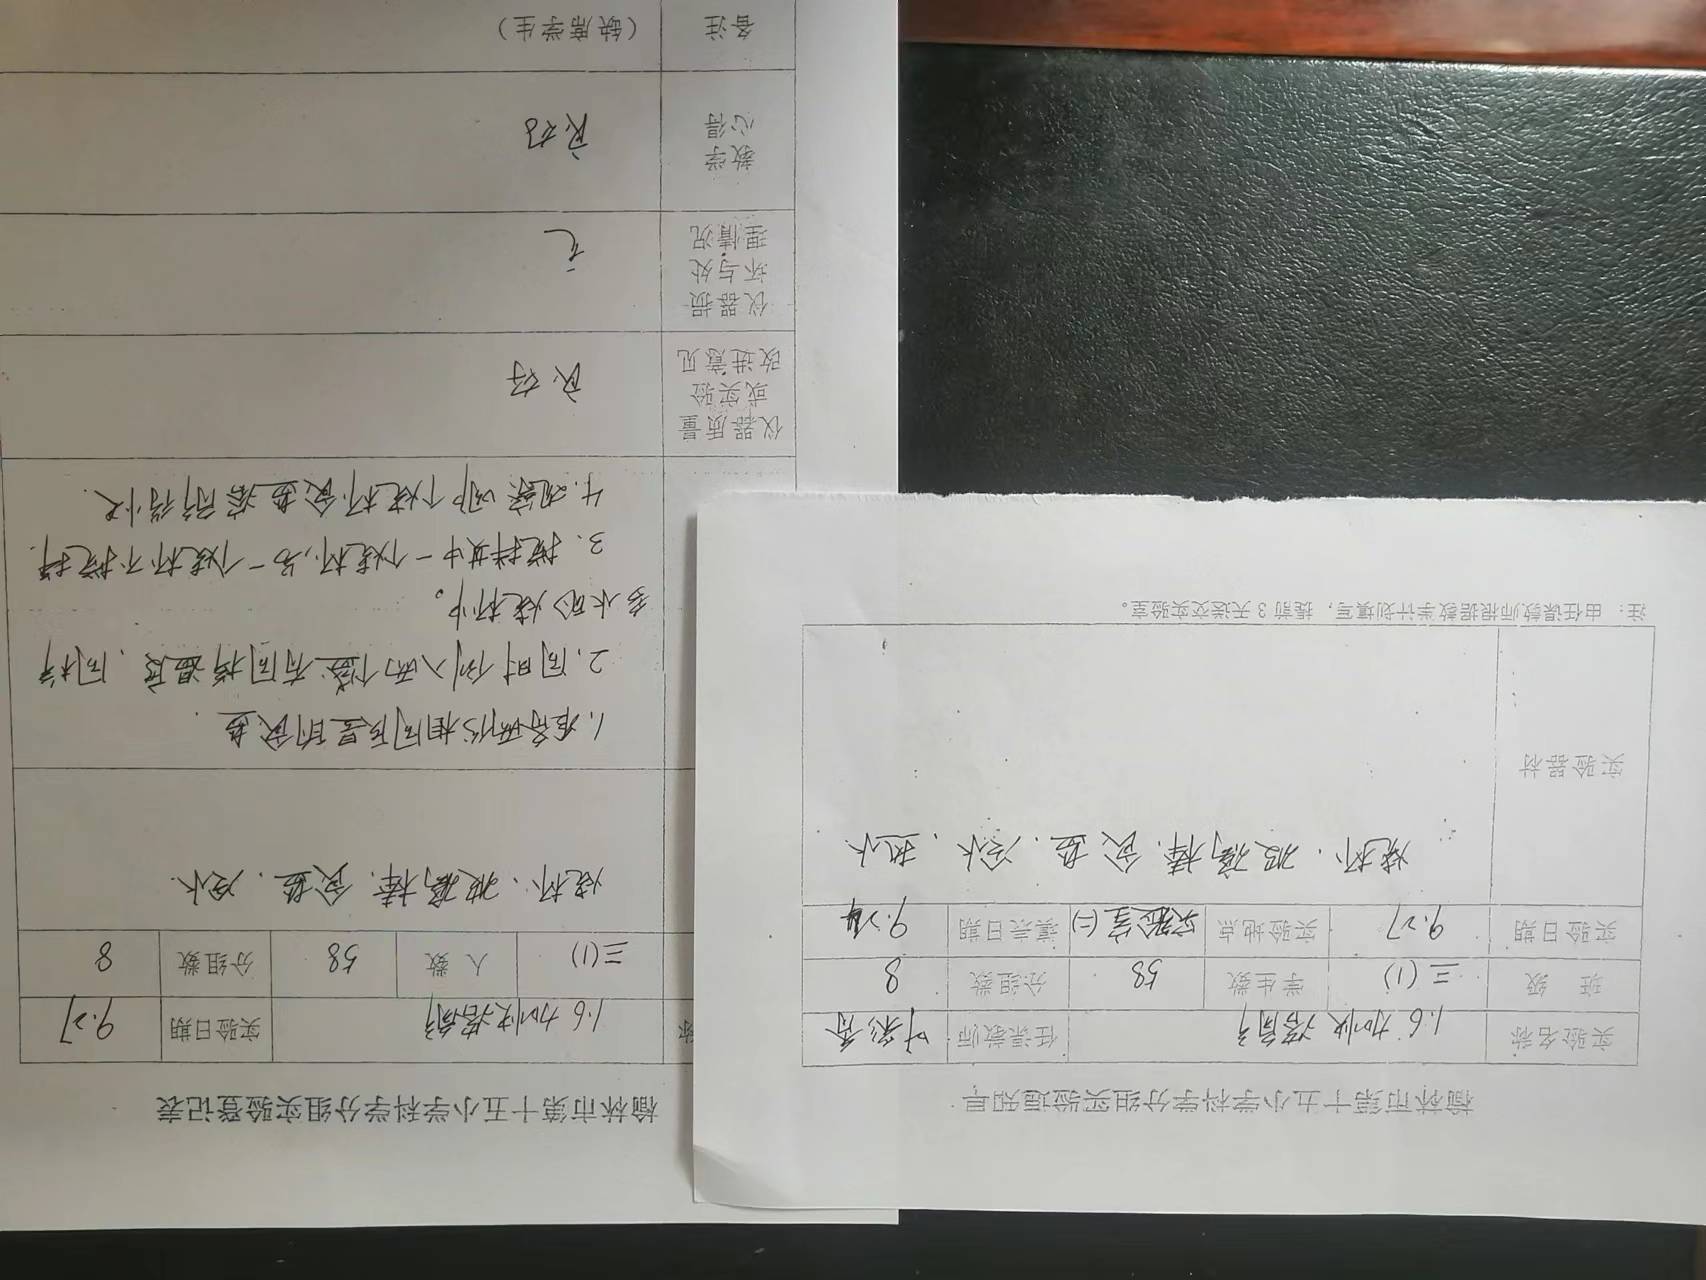 榆林市第十五小学科学分组实验通知单
实验名称 1.6 加快溶解 任课教师 叶彩香
班 级 三(1) 学生数 58 分组数 8
实验日期 9.27 实验地点 实验室(二) 填表日期 9.24
烧杯、玻璃棒、食盐、冷水、热水
实验器材
注：由任课教师根据教学计划填写，提前3天送交实验室。
榆林市第十五小学科学分组实验登记表
称 1.6 加快溶解 实验日期 9.27
三(1) 人 数 58 分组数 8
烧杯、玻璃棒、食盐、冷水
1.准备两份相同质量的食盐.
2.同时倒入两个盛有同样温度、同样
多水的烧杯中。
3.搅拌其中一个烧杯,另一个烧杯不搅拌.
4.观察哪个烧杯食盐溶解得快.
仪器质量
或实验
改进意见
良好
仪器损
坏与处
理情况
无
教学
心得
良好
备注 (缺席学生)